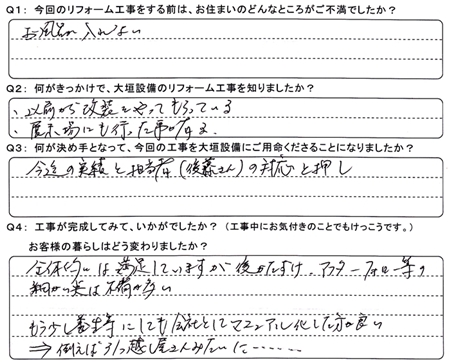 Q1: 今回のリフォーム工事をする前は、お住まいのどんなところがご不満でしたか?
お風呂が入れない
Q2: 何がきっかけで、大垣設備のリフォーム工事を知りましたか?
、以前から改装をやってもらっている
、展示場にも行った事が有る。
Q3: 何が決め手となって、今回の工事を大垣設備にご用命くださることになりましたか?
今迄の実績と担当者(後藤さん)の対応と押し
Q4: 工事が完成してみて、いかがでしたか? (工事中にお気付きのことでもけっこうです。)
お客様の暮らしはどう変わりましたか?
全体的には満足していますが後かたずけ、アフターフォロー等の
細かい実は不備が多い
もう少し養生等にしても会社としてマニュアル化した方が良い
⇒ 例えば引っ越し屋さんみたいに……